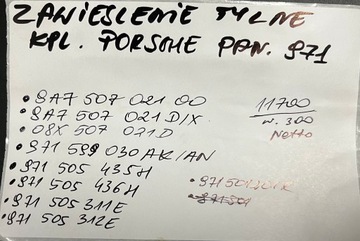 ZAWIESZENIE TYLNE
KPL. PORSCHE PAN. 971
• 9A7 507 021 00
• 9A7 507 021 D/X.
• 08X 507 021D
• 971 599 030 AK/AN
• 971 505 435H
• 971 505 436H
• 971 505 311E
• 971 505 312E
11700
w. 300
Netto
• 971 501